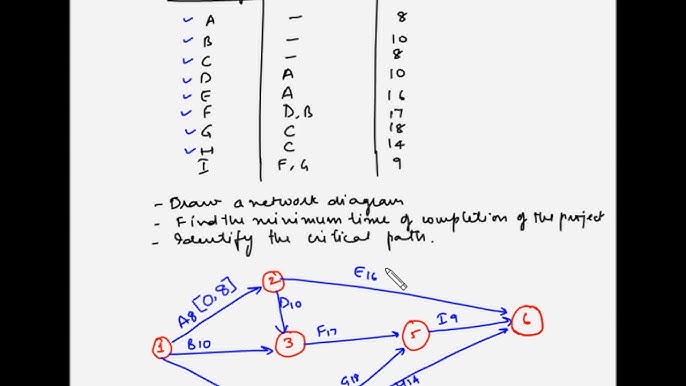 ✓ A — 8
✓ B — 10
✓ C — 8
✓ D A 10
✓ E A 16
✓ F D, B 17
✓ G C 18
✓ H C 14
I F, G 9
- Draw a network diagram
- Find the minimum time of completion of the project
- Identify the critical path.
E16
2
A8 [0, 8]
D10
I9
6
F17
5
B10
3
1
G18
H14